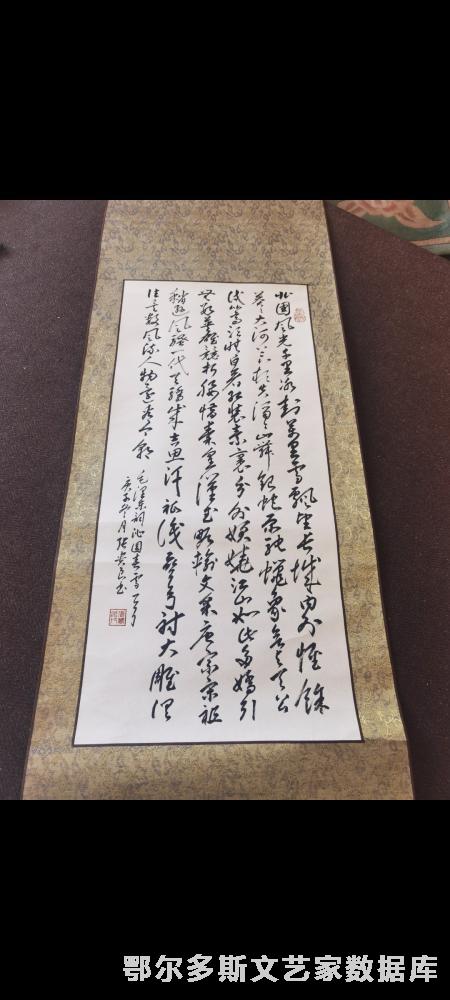 北國风光千里冰封萬里雪飄望长城内外惟餘
莽莽大河上下顿失滔滔山舞銀蛇原驰蠟象欲与天公
试比高须晴日看红装素裹分外妖娆江山如此多嬌引
无数英雄競折腰惜秦皇漢武略输文采唐宗宋祖
稍逊风骚一代天骄成吉思汗祗識弯弓射大雕俱
往矣数风流人物还看今朝
毛泽东词沁园春雪一首
庚子 月张 书
鄂尔多斯文艺家数据库